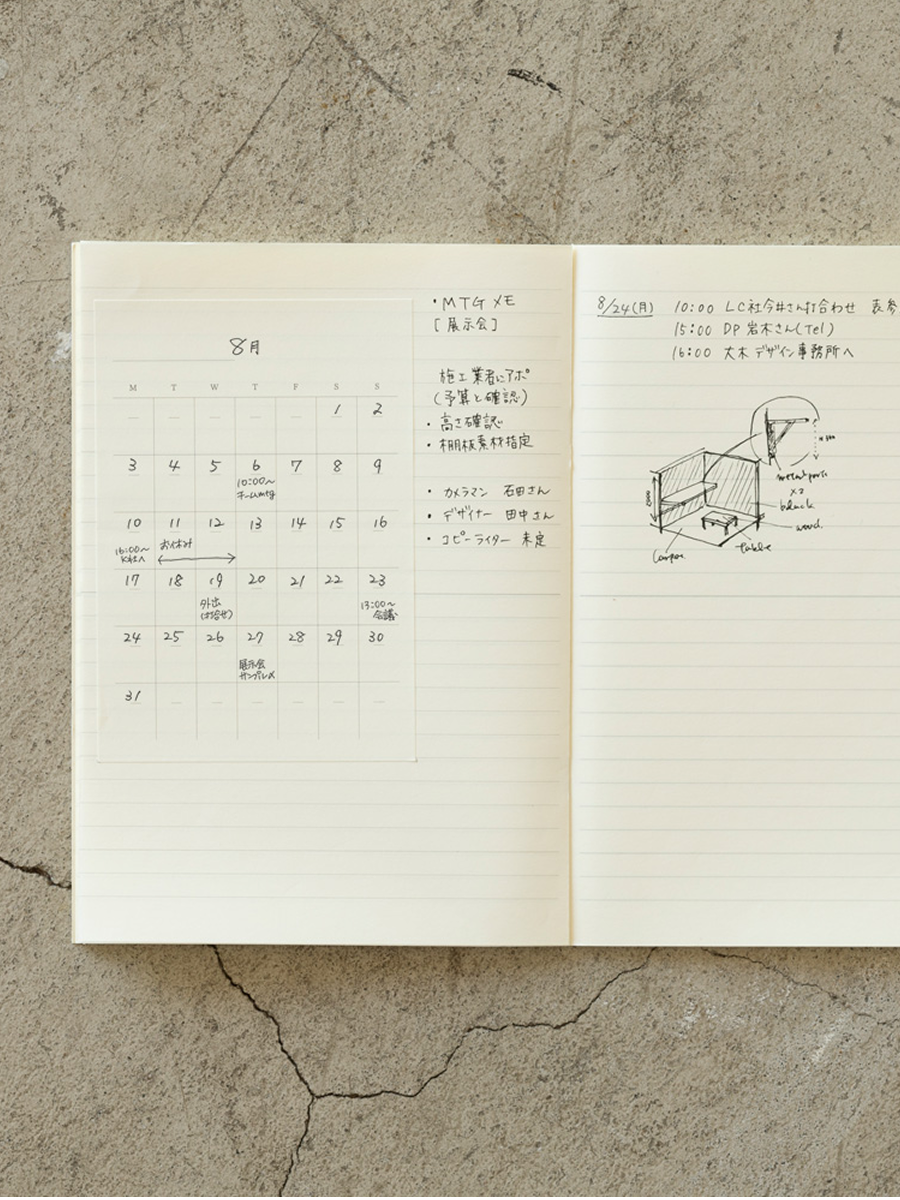 8月
M T W T F S S
1 2
3 4 5 6 7 8 9
10:00〜
チームmtg
10 11 12 13 14 15 16
16:00〜
K社へ
お休み
17 18 19 20 21 22 23
外出
(打合せ)
13:00〜
会議
24 25 26 27 28 29 30
展示会
サンプル〆
31
・MTG メモ
[展示会]
施工業者にアポ
(予算と確認)
・高さ確認
・棚板素材指定
・カメラマン 石田さん
・デザイナー 田中さん
・コピーライター 未定
8/24(月) 10:00 LC社今井さん打合わせ 表参
15:00 DP 岩木さん(Tel)
16:00 大木デザイン事務所へ
metal parts
×2
black
wood
table